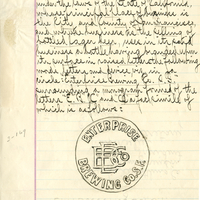 under the laws of the State of California,
whose principal place of business is
in the City and County of San Francisco,
and whose business is the selling of
bottled Lager beer, uses in its said
business a bottle having branded upon
its surface in raised letters the following
made letters and device viz: in
side: Enterprise Brewing Co. S.F.
surrounding a monogram formed of the
letters E. B. C. and a facsimile of
which is as follows:
ENTERPRISE
EBCo
BREWING CO. S.F.